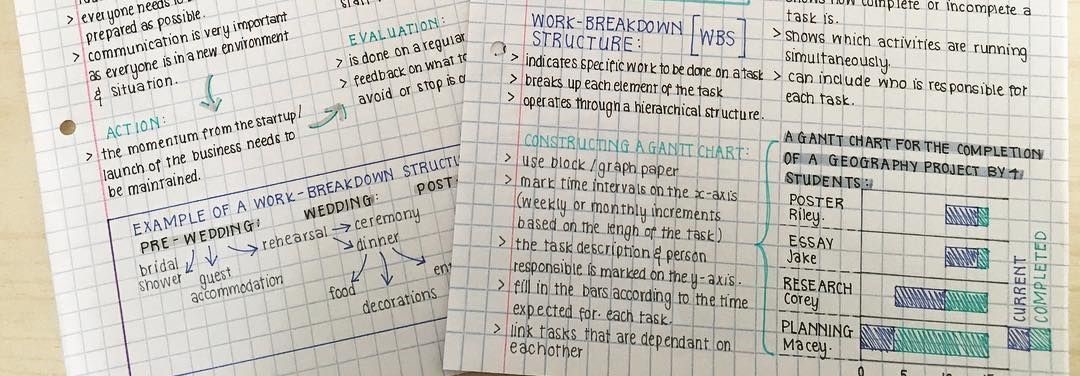 everyone needs to
prepared as possible.
> communication is very important
as everyone is in a new environment
& situation.
ACTION:
> the momentum from the startup/
launch of the business needs to
be maintained.
EVALUATION:
> is done on a regular
> feedback on what to
avoid or stop is
EXAMPLE OF A WORK-BREAKDOWN STRUCTU
PRE-WEDDING:
WEDDING:
POST-
bridal
shower
guest
accommodation
rehearsal
ceremony
dinner
food
decorations
WORK-BREAKDOWN
STRUCTURE:
[WBS]
> indicates specific work to be done on a task
> breaks up each element of the task
> operates through a hierarchical structure.
CONSTRUCTING A GANTT CHART:
> use block/graph paper
> mark time intervals on the x-axis
(weekly or monthly increments
based on the lengh of the task)
> the task description & person
responsible is marked on the y-axis.
> fill in the bars according to the time
expected for each task.
> link tasks that are dependant on
eachother
complete or incomplete a
task is.
> shows which activities are running
simultaneously.
> can include who is responsible for
each task.
A GANTT CHART FOR THE COMPLETION
OF A GEOGRAPHY PROJECT BY 4
STUDENTS:
POSTER
Riley.
ESSAY
Jake
RESEARCH
Corey
PLANNING
Macey.
CURRENT
COMPLETED